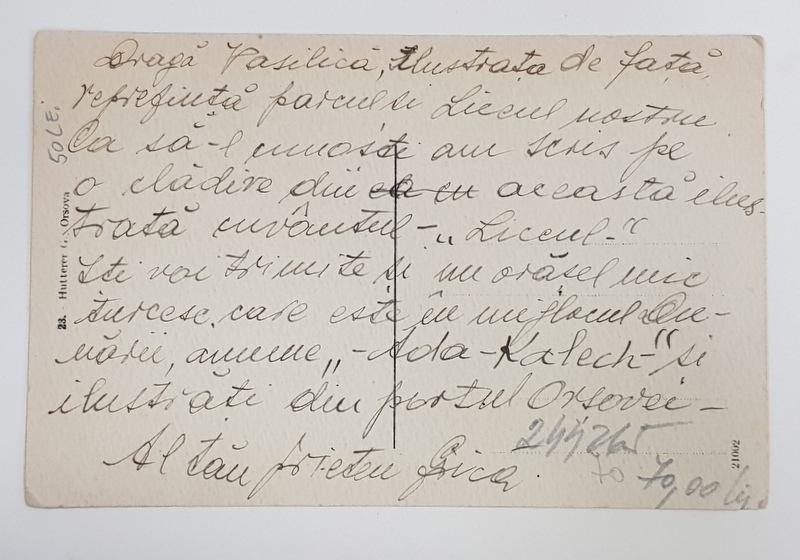 Dragă Vasilică, Ilustrata de față,
reprefintă parcul si Liceul nostru
Ca să-l cunoști am scris pe
o clădire din ca cu această ilus-
trată cuvântul - „Liceul-“
Iti voi trimite si un orășel mic
turcesc, care este în mijlocul Du-
nării, anume „-Ada-Kalech-“ si
ilustrăti din portul Orsovei -
Al tău prieten Grica.
50 LEi
23. Hutterer G., Orsova
244265
70,00 lei.
21002